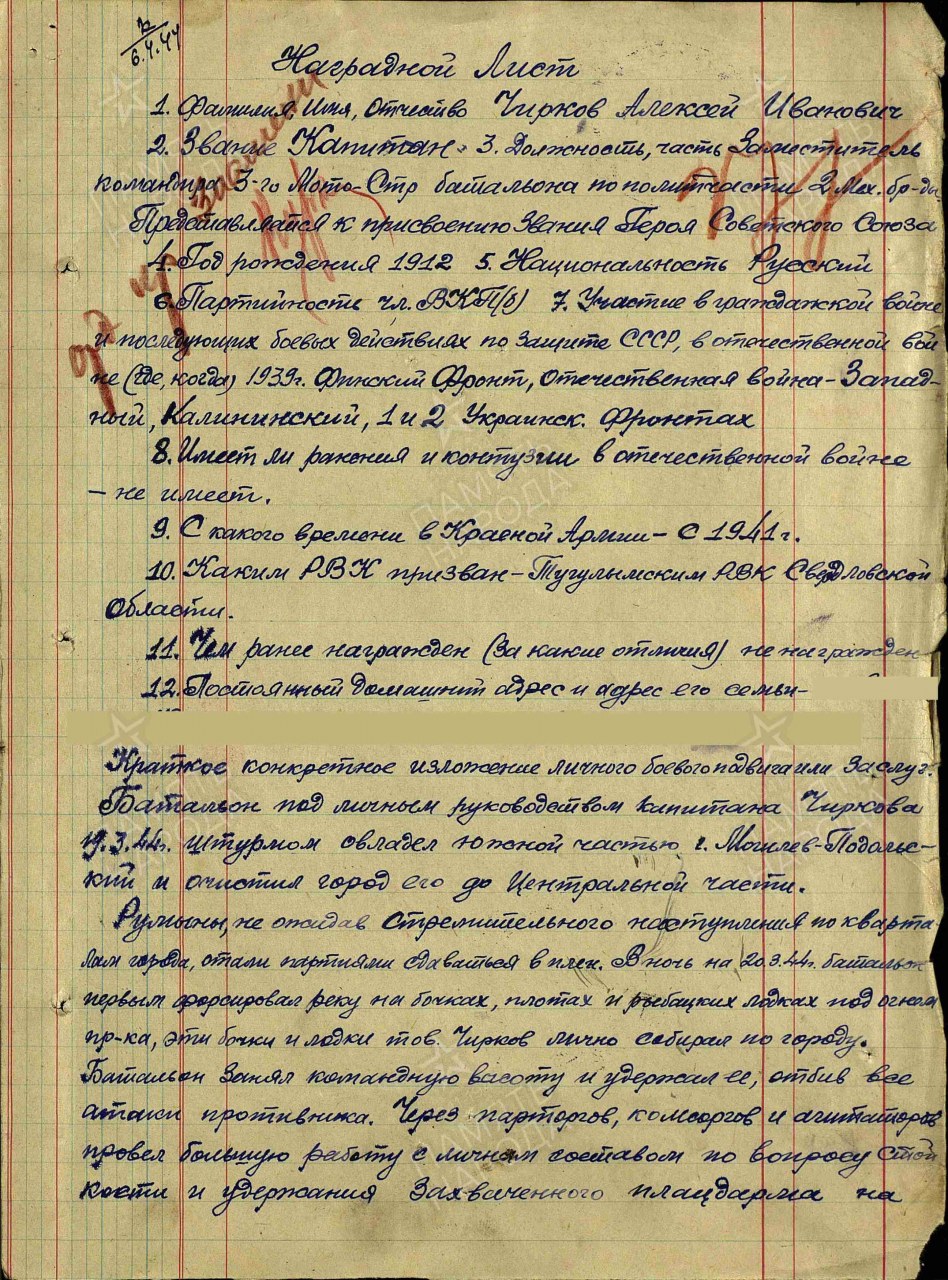 6.4.44
Наградной Лист
1. Фамилия, Имя, Отчество Чирков Алексей Иванович
2. Звание Капитан 3. Должность, часть Заместитель
командира 3-го Мото-Стр батальона по политчасти 2 Мех. бр-ды
Представляется к присвоению Звания Героя Советского Союза
4. Год рождения 1912 5. Национальность Русский
6. Партийность чл. ВКП(б) 7. Участие в гражданской войне
и последующих боевых действиях по защите СССР, в отечественной вой
не (где, когда) 1939г. Финский Фронт, Отечественная война - Запад-
ный, Калининский, 1 и 2 Украинск. фронтах
8. Имеет ли ранения и контузии в отечественной войне
- не имеет.
9. С какого времени в Красной Армии - С 1941 г.
10. Каким РВК призван - Тугулымским РВК Свердловской
Области.
11. Чем ранее награжден (за какие отличия) не награжден
12. Постоянный домашний адрес и адрес его семьи-
Краткое конкретное изложение личного боевого подвига или Заслуг.
Батальон под личным руководством капитана Чиркова
19.3.44г. штурмом овладел южной частью г. Могилев-Подоль-
ский и очистил город его до Центральной части.
Румыны, не ожидав стремительного наступления по кварта
лам города, стали партиями сдаваться в плен. В ночь на 20.3.44г. батальон
первым форсировал реку на бочках, плотах и рыбацких лодках под огнем
пр-ка, эти бочки и лодки тов. Чирков лично собирал по городу.
Батальон Занял командную высоту и удержал ее, отбив все
атаки противника. Через парторгов, комсоргов и агитаторов
провел большую работу с личным составом по вопросу стой
кости и удержания Захваченного плацдарма на
ПАМЯТЬ
НАРОДА